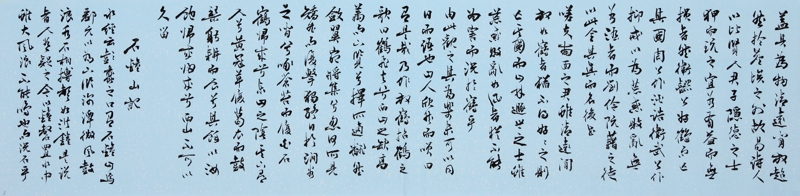 蓋其為物清遠閒放超
然於塵埃之外故易詩人
以比賢人君子隱德之士
狎而玩之宜若有益而無
損者然衛懿公好鶴則亡
其國周公作酒誥衛武公作
抑戒以為荒惑敗亂無
若酒者而劉伶阮籍之徒
以此全其真而名後世
嗟夫南面之君雖清遠閒
放如鶴者猶不得好好之則
亡其國而山林遁世之士雖
荒惑敗亂如酒者猶不能
為害而況於鶴乎
由此觀之其為樂未可以同
日而語也山人欣然而笑曰
有是哉乃作放鶴招鶴之
歌曰鶴飛去兮西山之缺高
翔而下覽兮擇所適翻然
斂翼宛將集兮忽何所見
矯然而復擊獨終日於澗谷
之間兮啄蒼苔而履白石
鶴歸來兮東山之陰其下有
人兮黃冠草屨葛衣而鼓
琴躬耕而食兮其餘以汝
飽歸來歸來兮西山不可以
久留
石鐘山記
水經云彭蠡之口有石鐘山焉
酈元以為下臨深潭微風鼓
浪水石相搏聲如洪鐘是說
也人常疑之今以鐘磬置水中
雖大風浪不能鳴也而況石乎